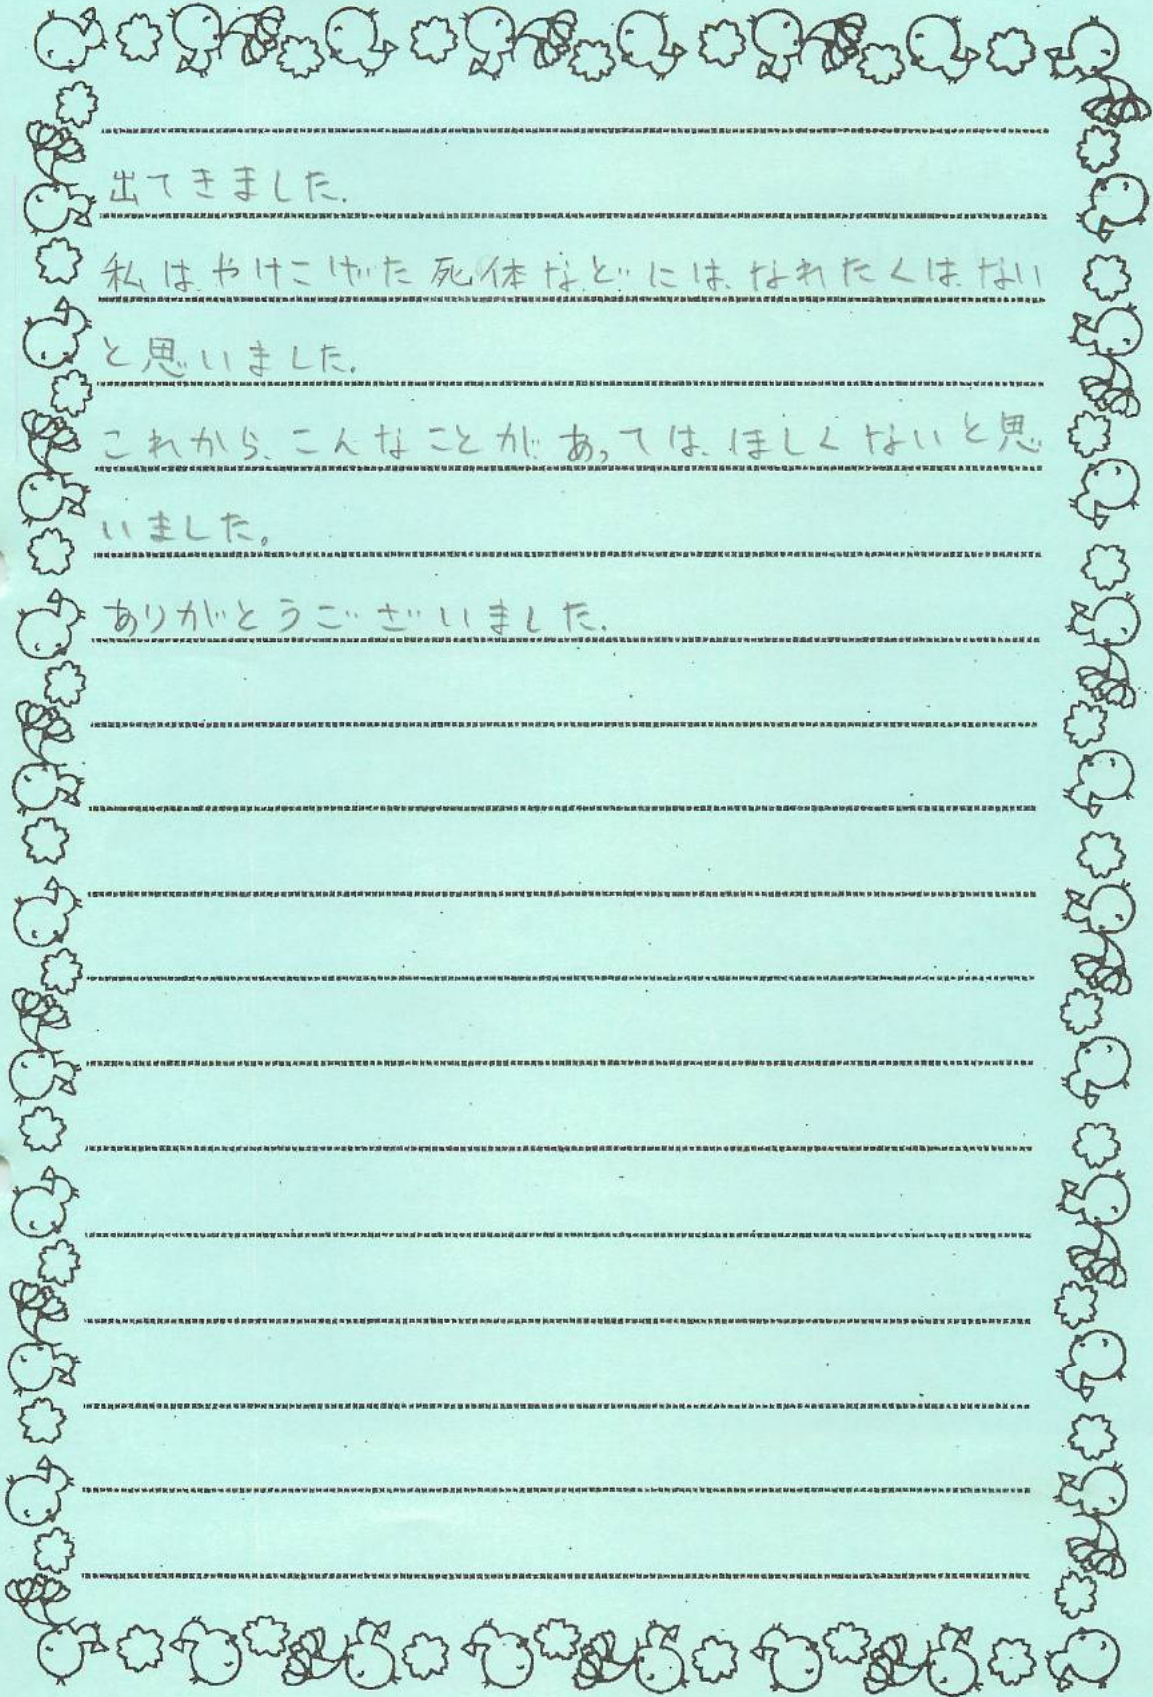 出てきました.
私は、やけこげた死体などには、なれたくは、ない
と思いました.
これから、こんなことが、あっては、ほしくないと思
いました。
ありがとうございました.